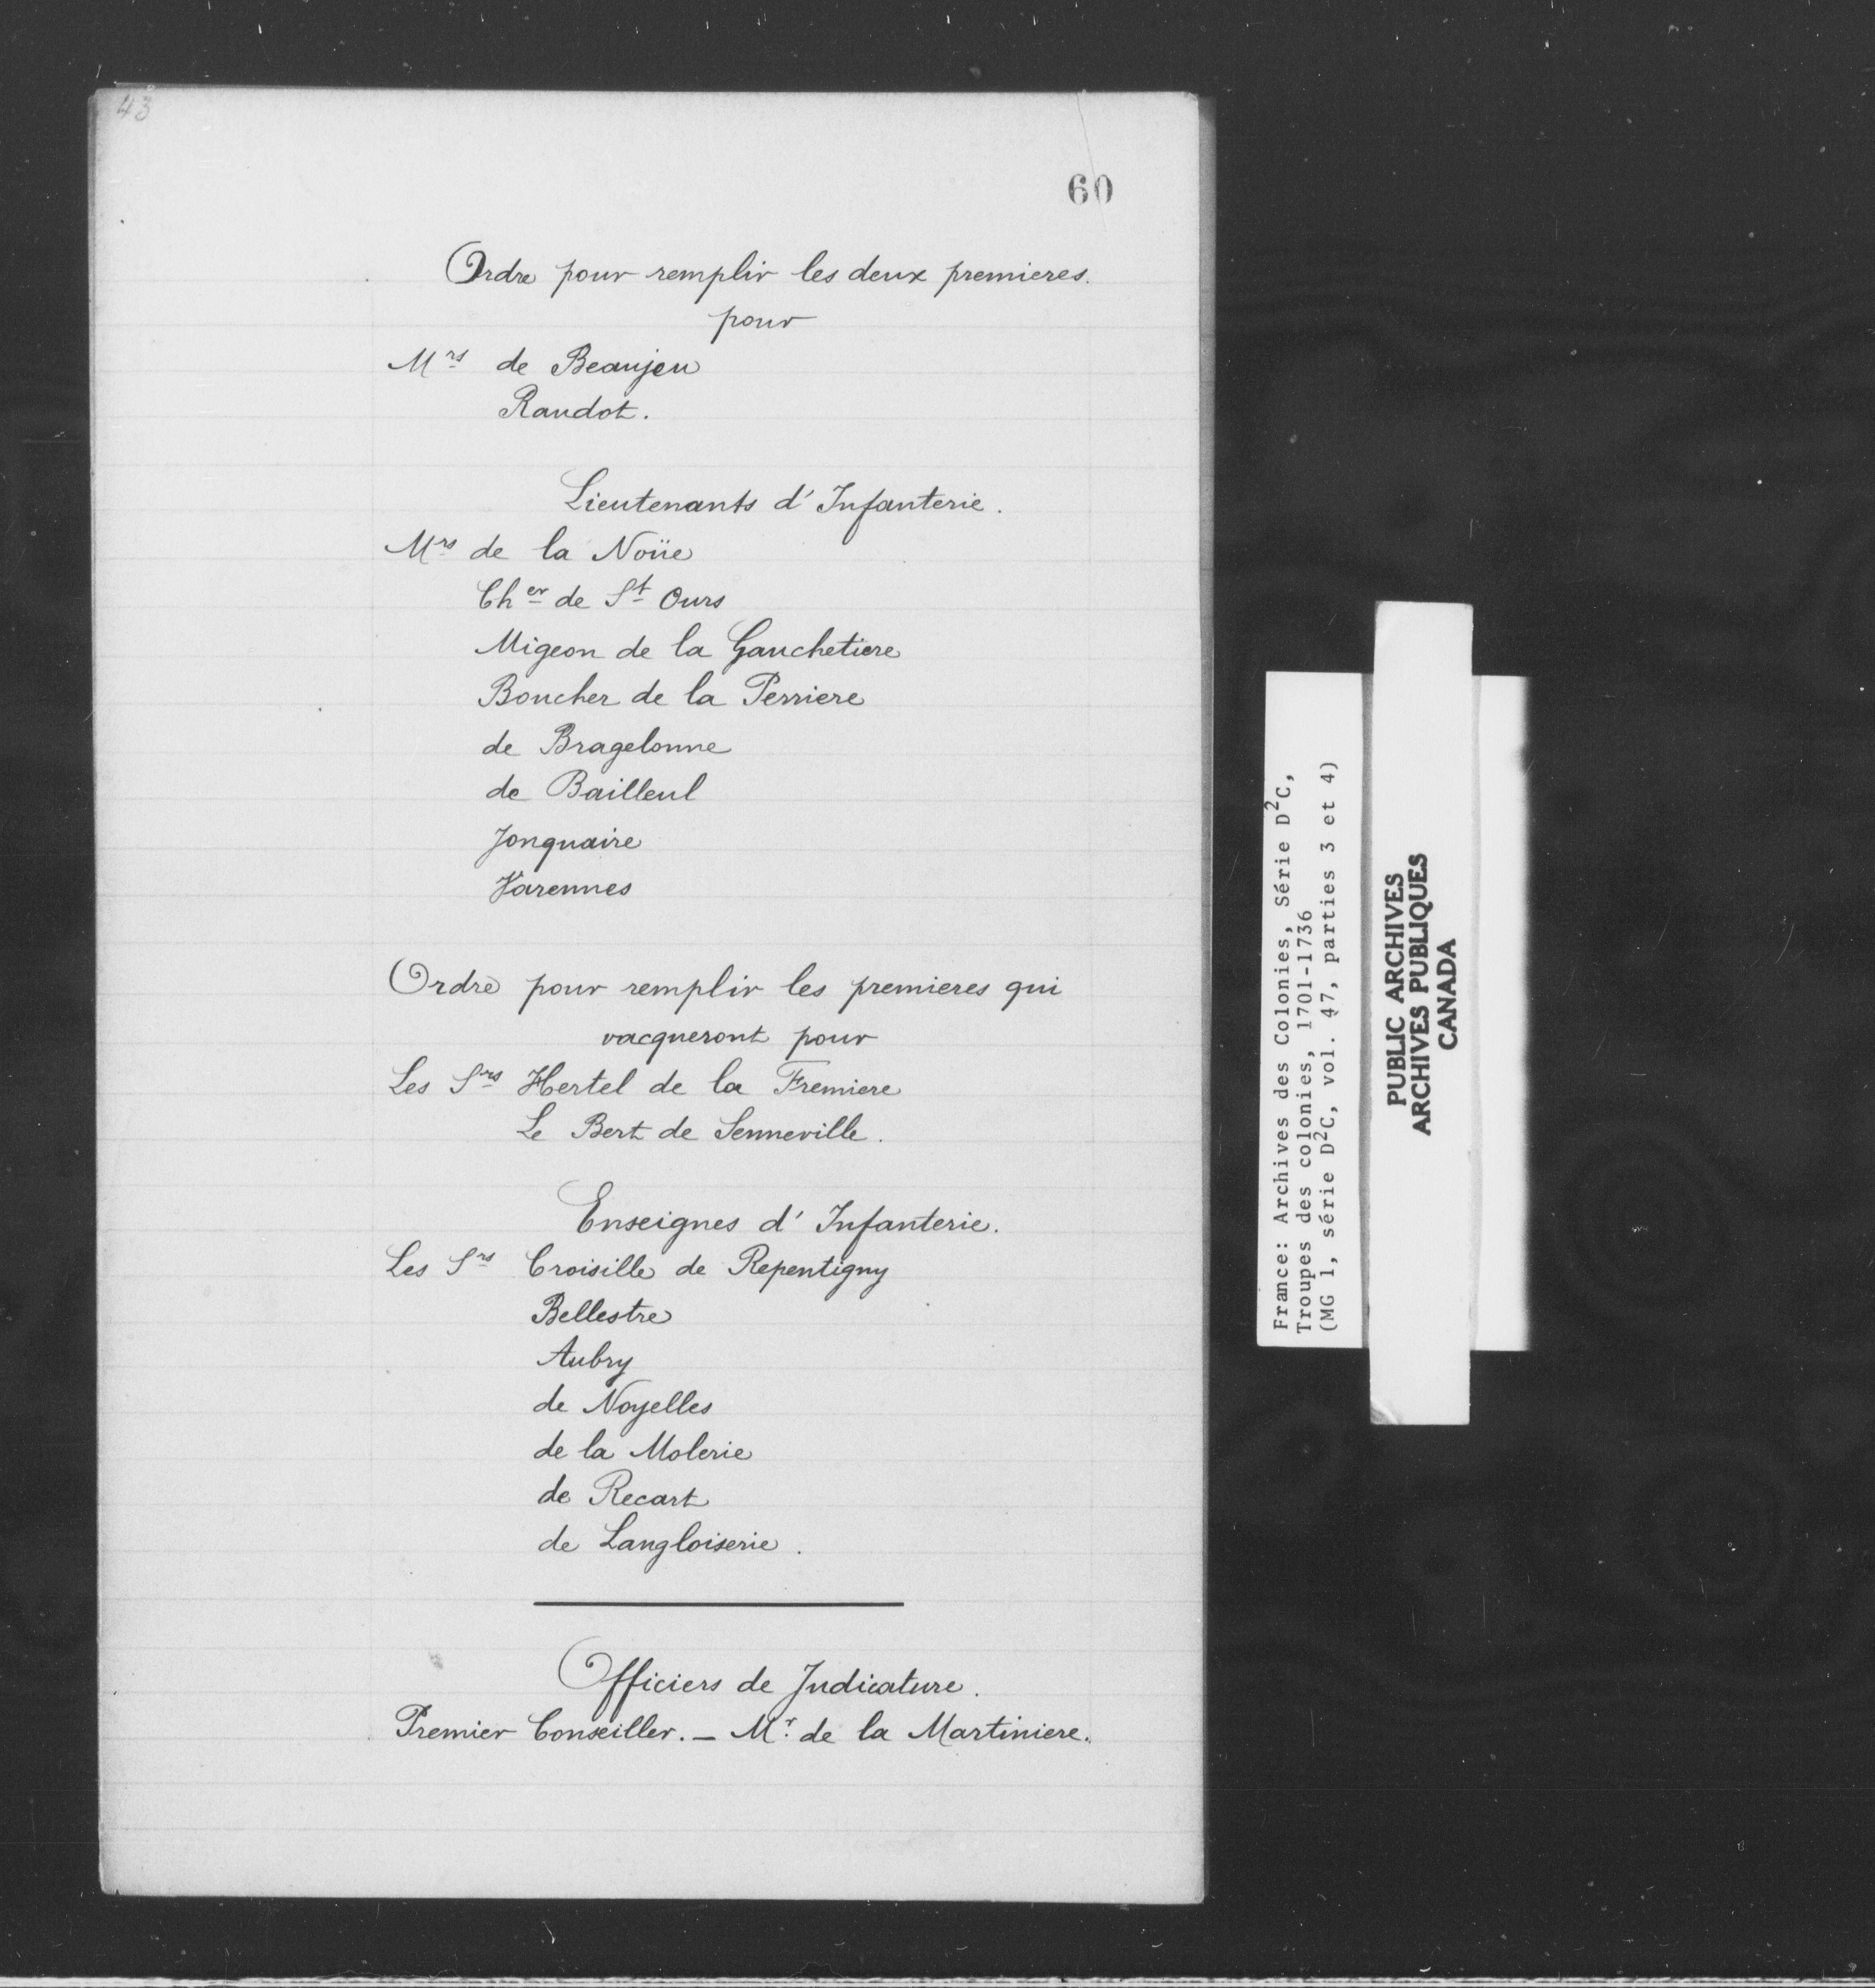 43
60
Ordre pour remplir les deux premieres.
pour
Mrs de Beaujeu
Raudot.
Lieutenants d'Infanterie.
Mrs de la Noüe
Cher de St Ours
Migeon de la Gauchetiere
Boucher de la Perriere
de Bragelonne
de Bailleul
Jonquaire
Varennes
Ordre pour remplir les premieres qui
vacqueront pour
Les Srs Hertel de la Fremiere
Le Bert de Senneville.
Enseignes d'Infanterie.
Les Srs Croisille de Repentigny
Bellestre
Aubry
de Noyelles
de la Molerie
de Recart
de Langloiserie.
Officiers de Judicature.
Premier Conseiller. — Mr. de la Martiniere.
France: Archives des Colonies, Série D²C,
Troupes des colonies, 1701-1736
(MG 1, série D²C, vol. 47, parties 3 et 4)
PUBLIC ARCHIVES
ARCHIVES PUBLIQUES
CANADA